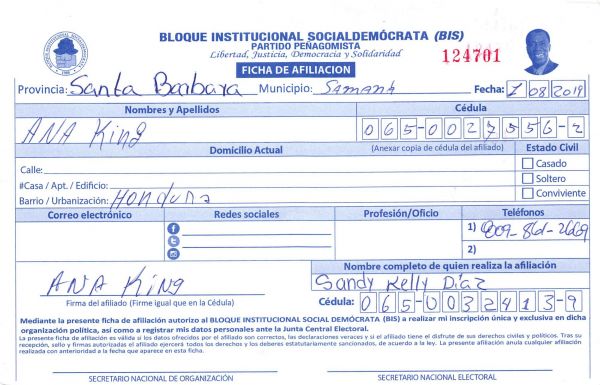 BLOQUE INSTITUCIONAL SOCIALDEMÓCRATA (BIS)
PARTIDO PEÑAGOMISTA
Libertad, Justicia, Democracia y Solidaridad
124701
FICHA DE AFILIACION
Provincia: Santa Barbara Municipio: SAMANA Fecha: 7 08 2019
Nombres y Apellidos Cédula
ANA King 065-0027556-2
Domicilio Actual (Anexar copia de cédula del afiliado) Estado Civil
Calle: Casado
#Casa / Apt. / Edificio: Soltero
Barrio / Urbanización: Hondura Conviviente
Correo electrónico Redes sociales Profesión/Oficio Teléfonos
1) 809-861-2669
2)
Nombre completo de quien realiza la afiliación
ANA King Sandy Kelly Díaz
Firma del afiliado (Firme igual que en la Cédula) Cédula: 065-0032413-9
Mediante la presente ficha de afiliación autorizo al BLOQUE INSTITUCIONAL SOCIAL DEMÓCRATA (BIS) a realizar mi inscripción única y exclusiva en dicha
organización política, así como a registrar mis datos personales ante la Junta Central Electoral.
La presente ficha de afiliación es válida si los datos ofrecidos por el afiliado son correctos, las declaraciones veraces y si el afiliado tiene el disfrute de sus derechos civiles y políticos. Tras su
recepción, sello y firmas autorizadas el afiliado ejercerá todos los derechos y los deberes estatutariamente sancionados, de acuerdo a la ley. La presente afiliación anula cualquier afiliación
realizada con anterioridad a la fecha que aparece en esta ficha.
SECRETARIO NACIONAL DE ORGANIZACIÓN SECRETARIO NACIONAL ELECTORAL